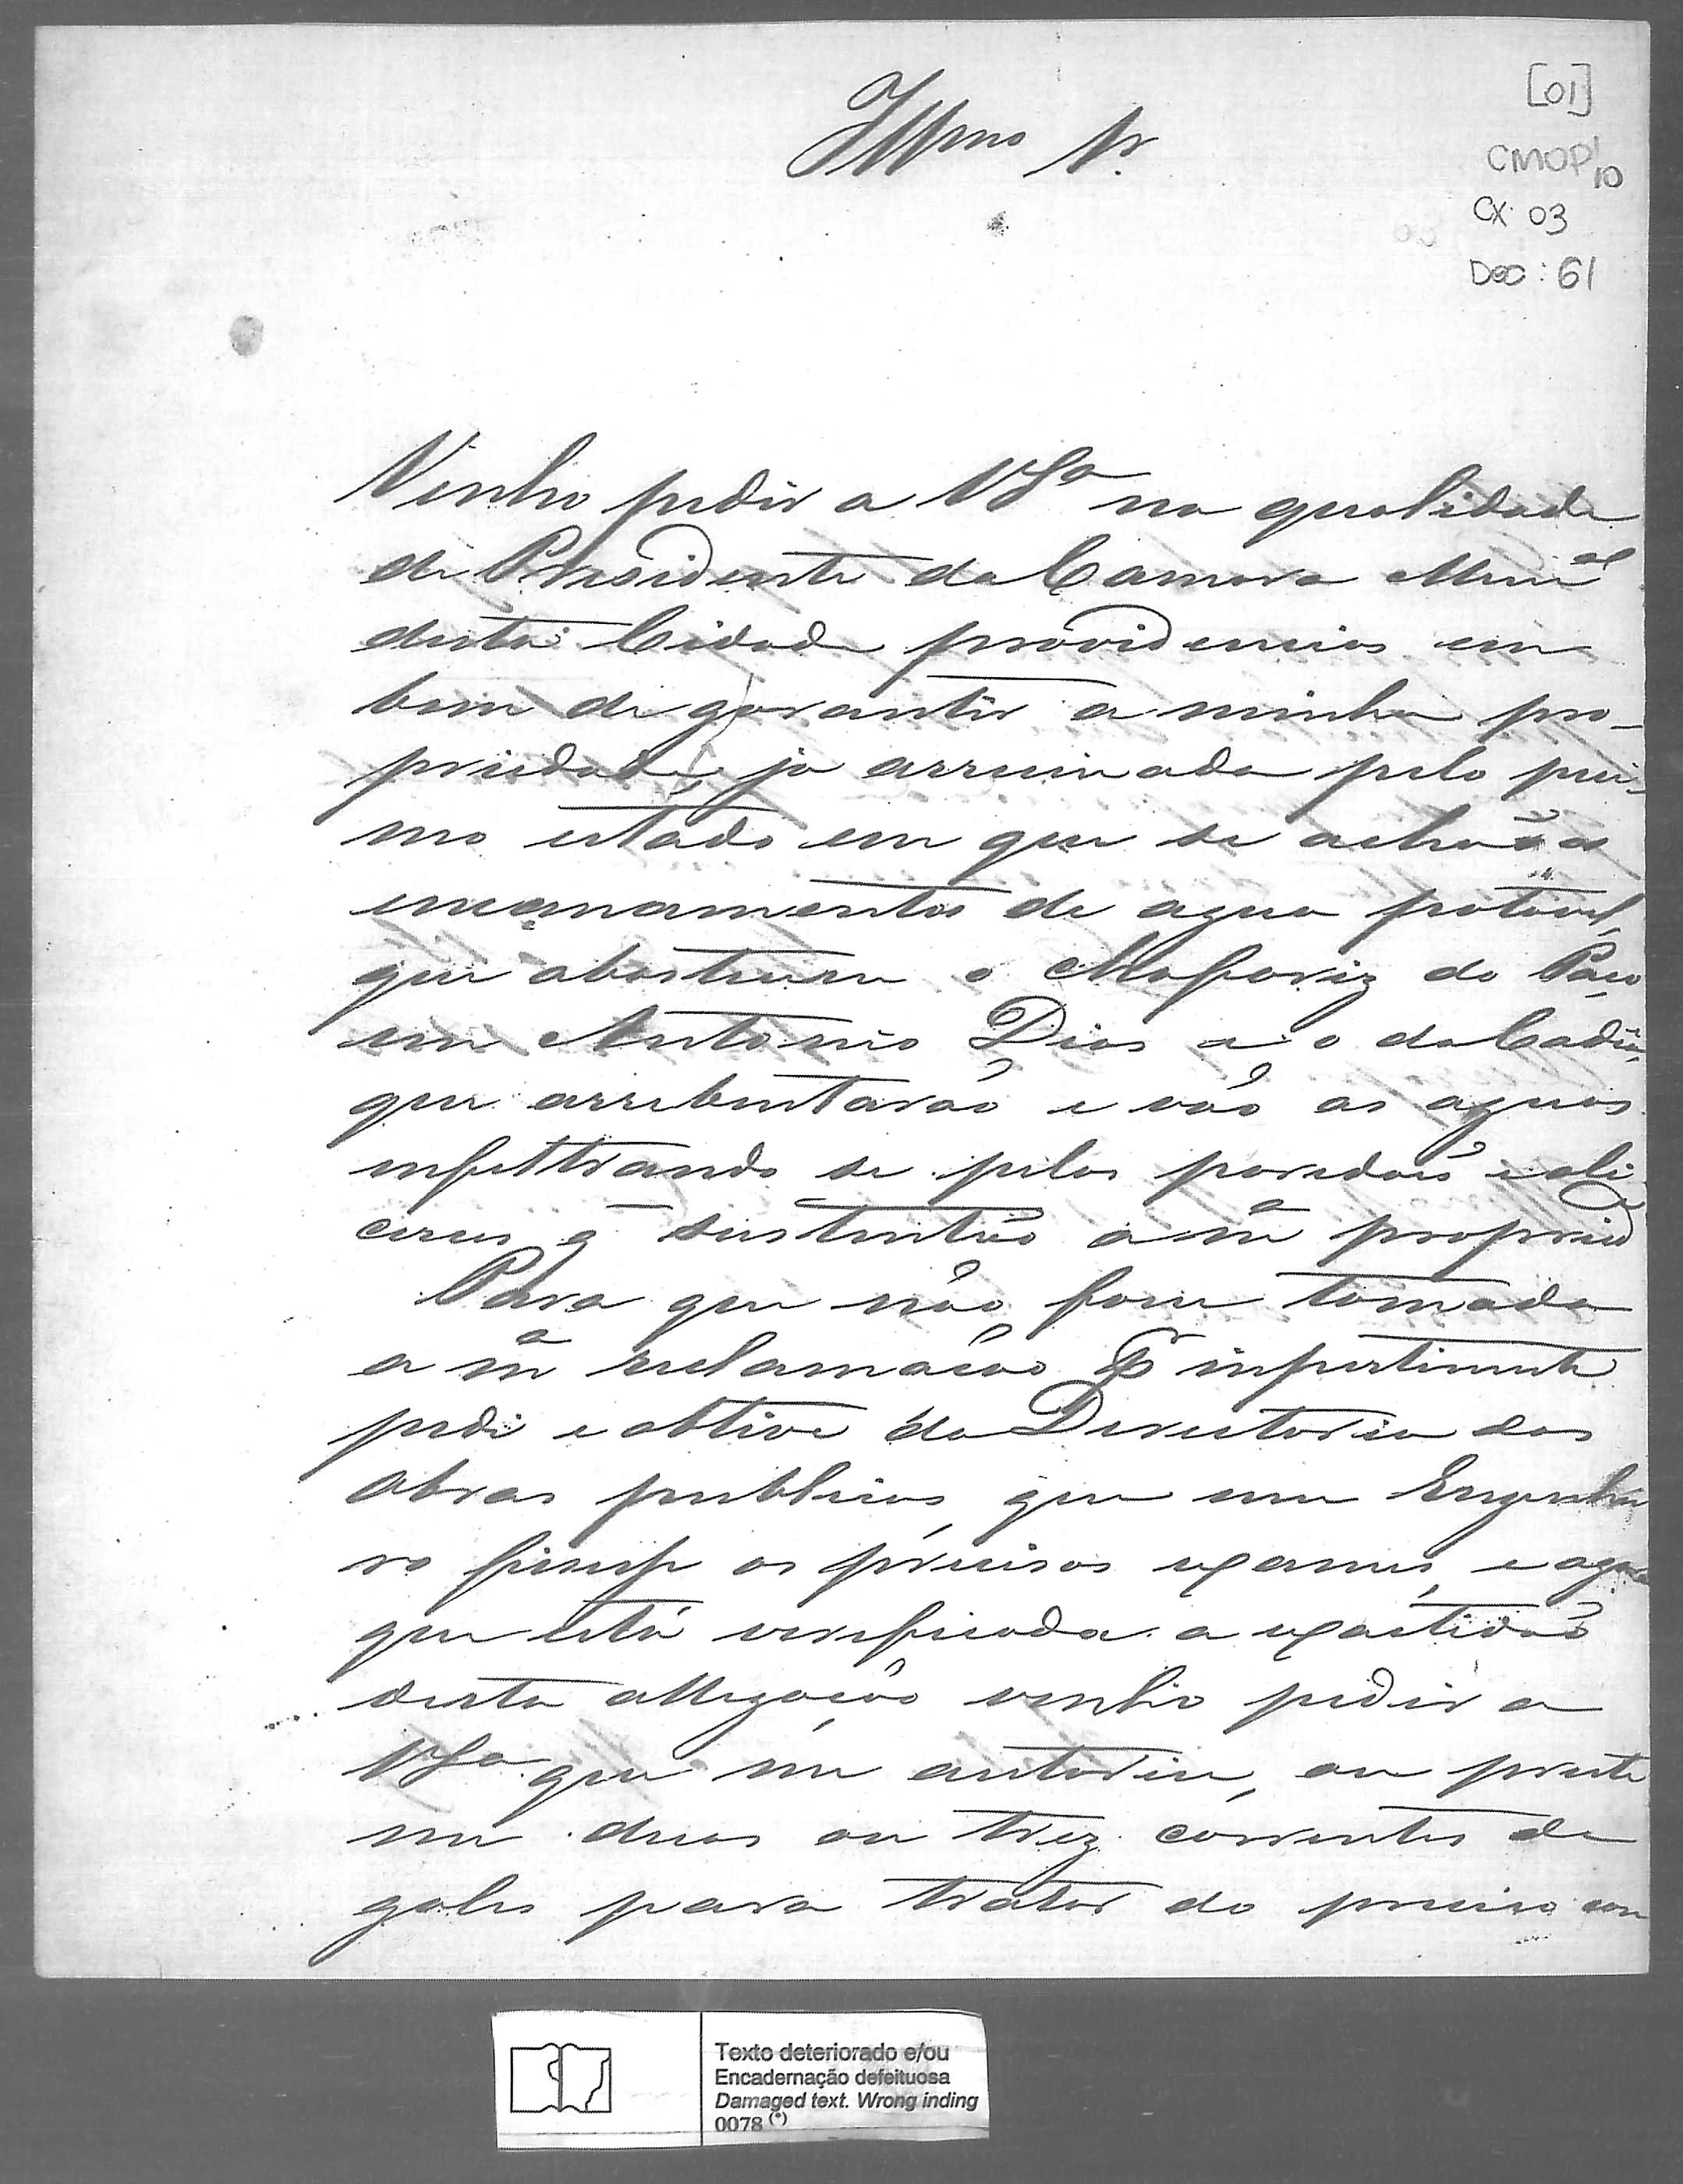 Illmo Sr.
[01]
CMOP 10
CX 03
Doc: 61
Venho pedir a VSa na qualidade
de Presidente da Camara Munal
desta Cidade providencias em
bem de garantir a minha pro-
priedade, ja arruinada pelo pes-
mo estado em que se achaõ os
encanamentos de agua potavel,
que abastecem o Chafariz do Paço
em Antonio Dias e o da Cadêa,
que arrebentaraõ e vaõ as aguas
infeltrando se pelos paredoẽs e ali-
cerces q̃ sustentaõ a ma propried
Para que naõ fosse tomada
a ma reclamaçaõ impertinente
pedi e obtive da Directoria das
Obras publicas, que um Engenhei
ro fizesse os precisos exames, e agora
que está verificada a exactidaõ
desta allegaçaõ venho pedir a
VSa que me autorise, ou preste
me duas ou trez correntes de
galés para tratar do preciso con
Texto deteriorado e/ou
Encadernação defeituosa
Damaged text. Wrong inding
0078 (*)